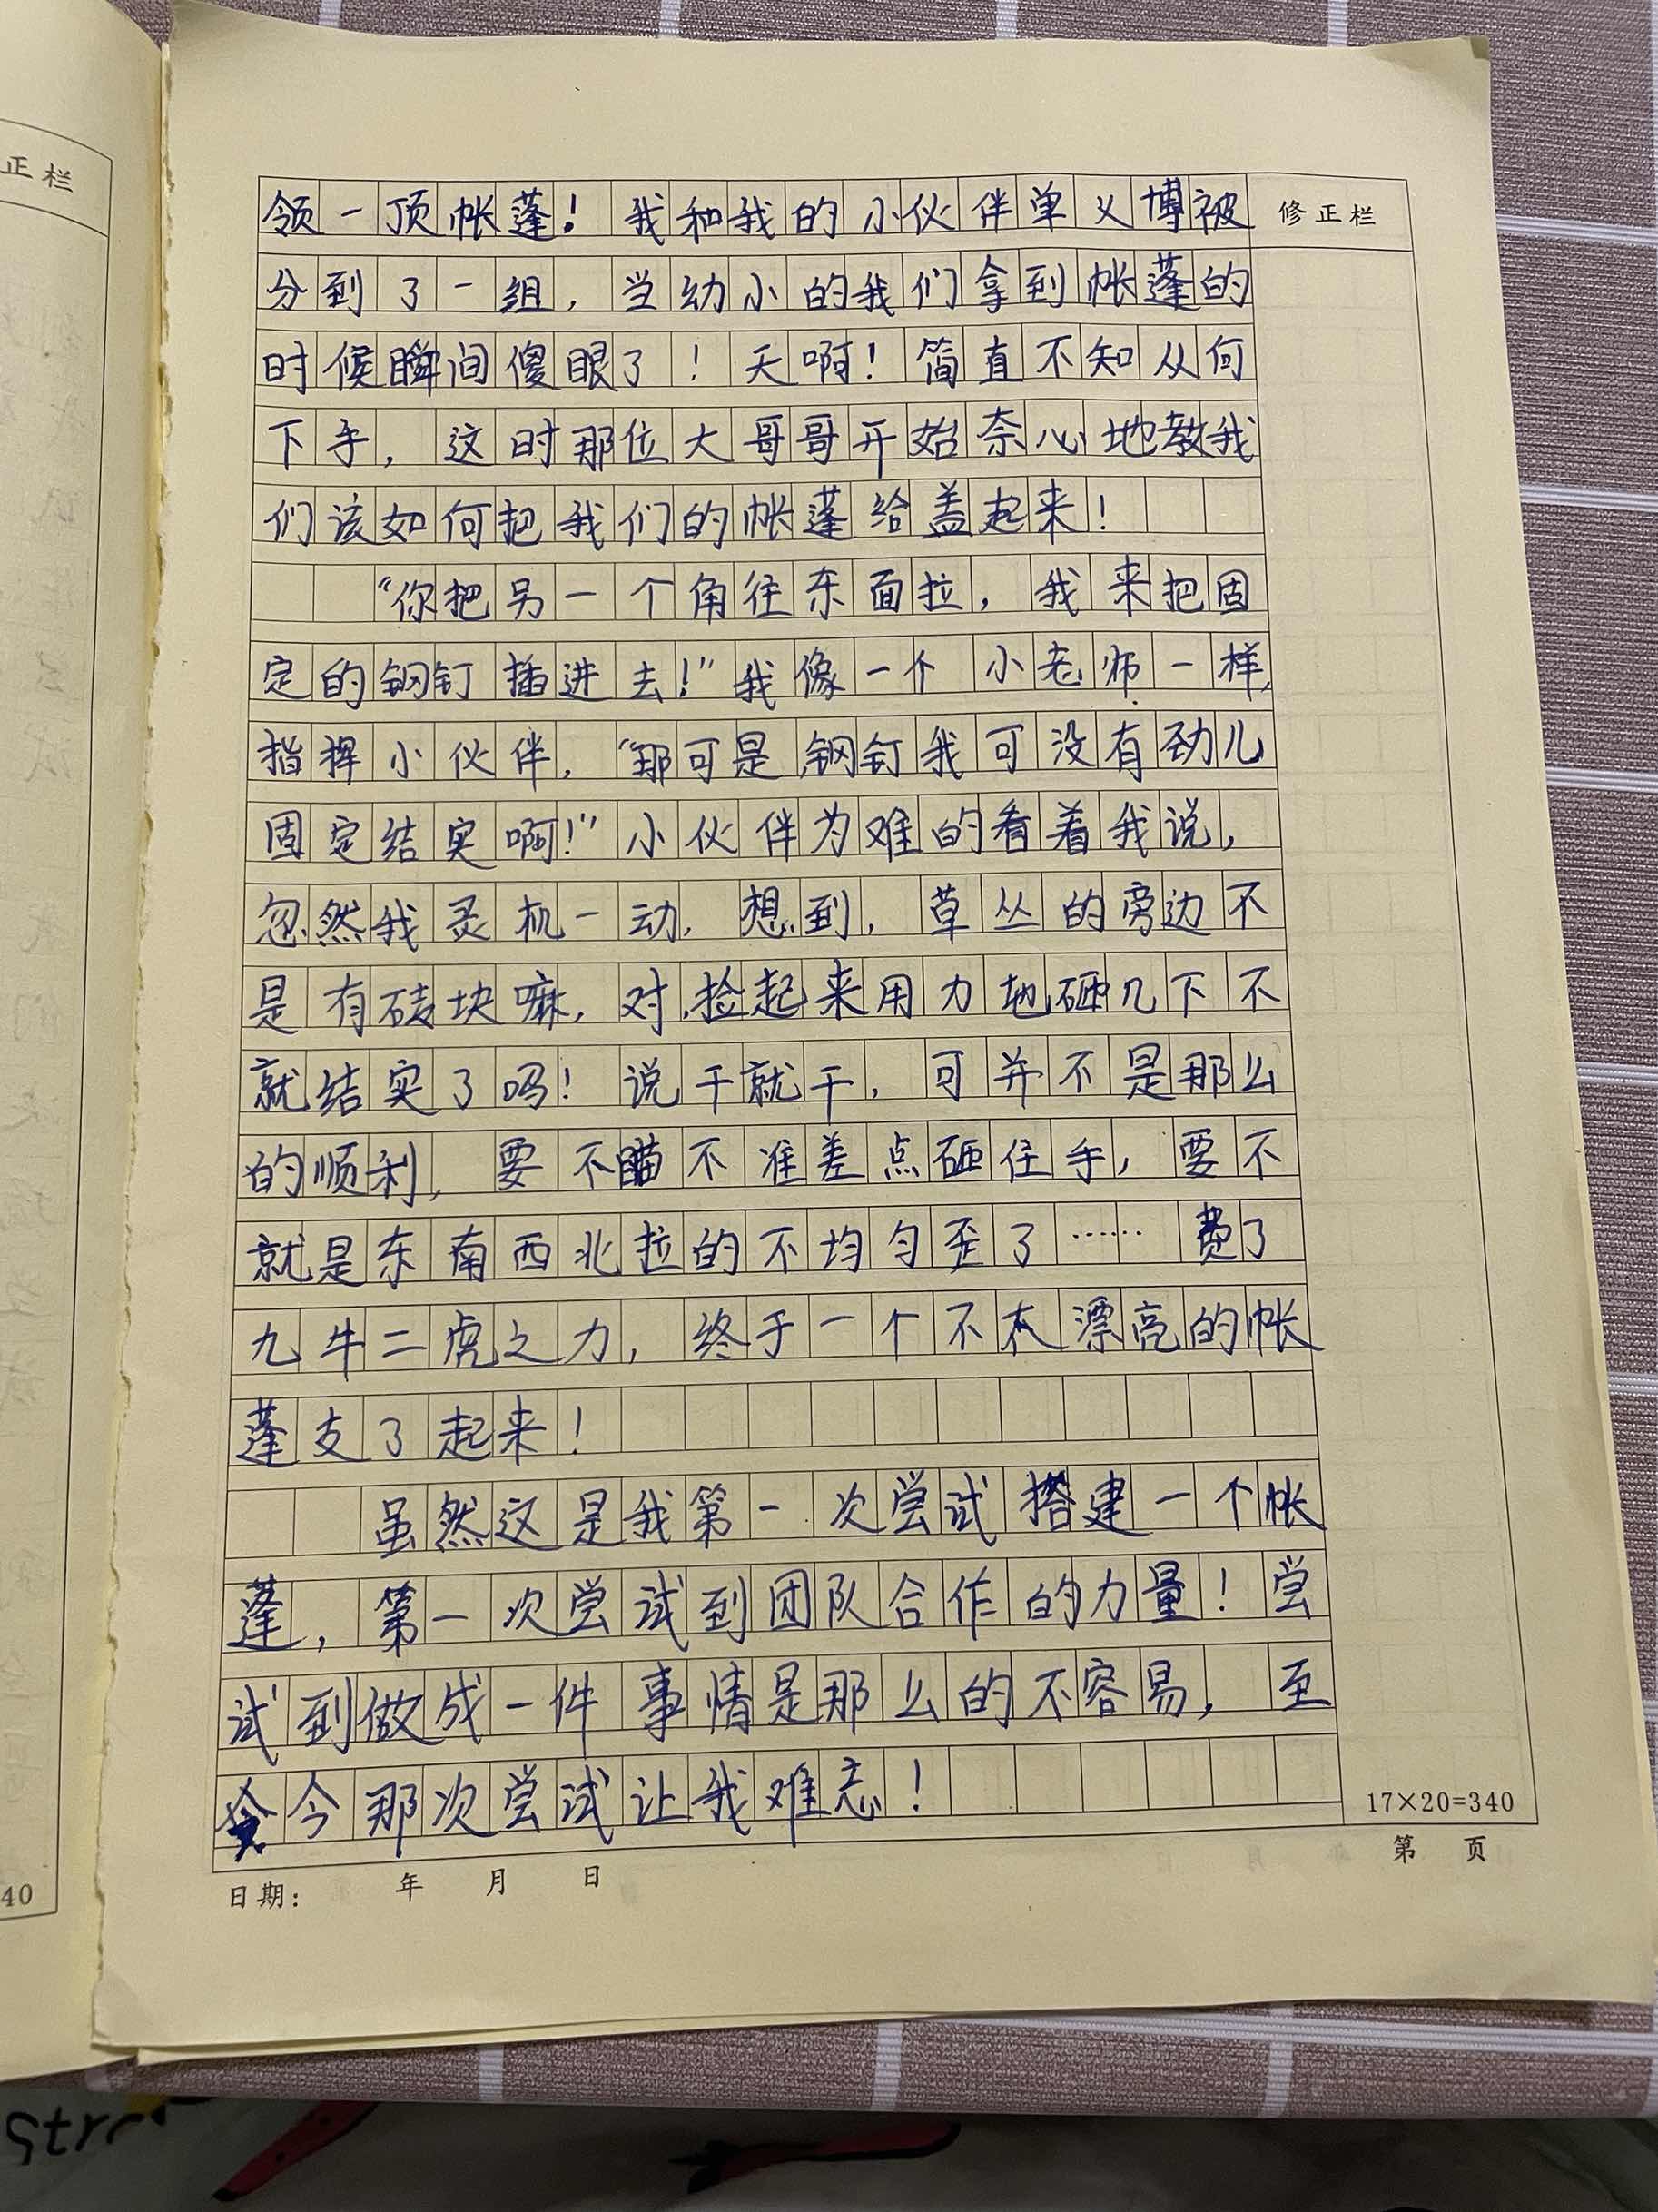 正栏
修正栏
领一顶帐蓬！我和我的小伙伴单义博被
分到了一组，当幼小的我们拿到帐蓬的
时候瞬间傻眼了！天啊！简直不知从何
下手，这时那位大哥哥开始奈心地教我
们该如何把我们的帐蓬给盖起来！
“你把另一个角往东面拉，我来把固
定的钢钉插进去！”我像一个小老师一样，
指挥小伙伴，“那可是钢钉我可没有劲儿
固定结实啊！”小伙伴为难的看着我说，
忽然我灵机一动，想到，草丛的旁边不
是有砖块嘛，对，捡起来用力地砸几下不
就结实了吗！说干就干，可并不是那么
的顺利，要不瞄不准差点砸住手，要不
就是东南西北拉的不均匀歪了……费了
九牛二虎之力，终于一个不太漂亮的帐
蓬支了起来！
虽然这是我第一次尝试搭建一个帐
蓬，第一次尝试到团队合作的力量！尝
试到做成一件事情是那么的不容易，至
今那次尝试让我难忘！
17×20=340
日期： 年 月 日
第 页
40